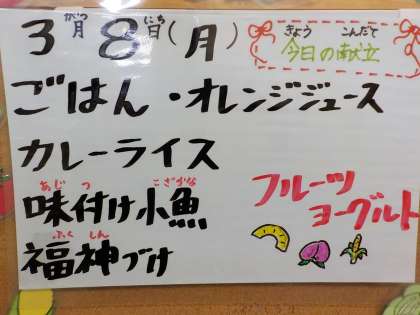 がつ にち
3月8日(月)
きょう こんだて
今日の献立
ごはん・オレンジジュース
カレーライス
あじ つ こざかな
味付け小魚
ふくしん
福神づけ
フルーツ
ヨーグルト